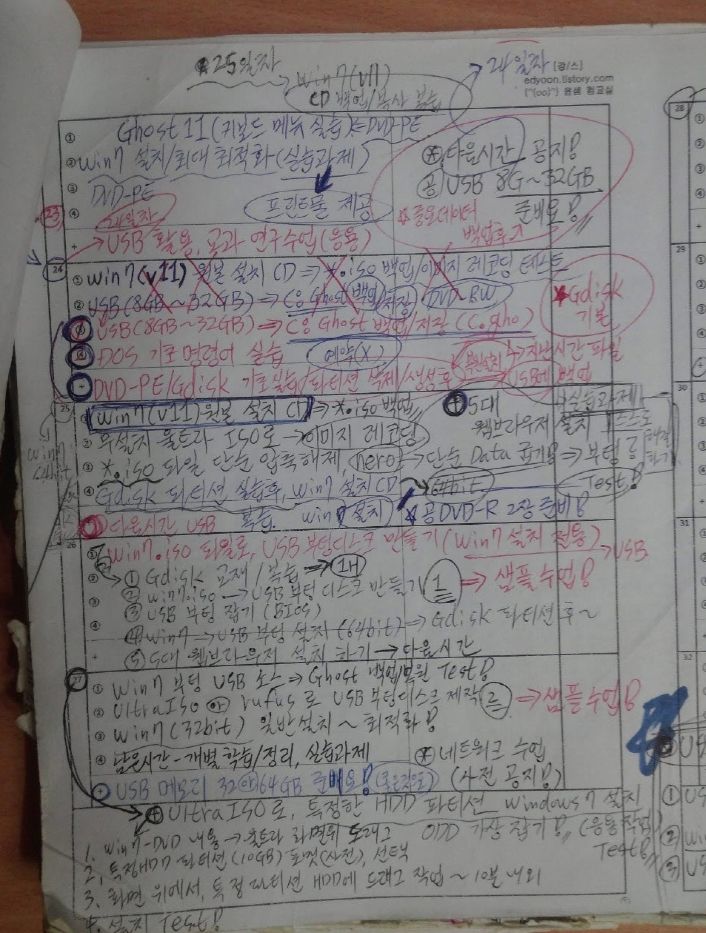 25일자
win7(v11)
CD 백업/복사 복습
24일자
[강/스]
edyoon.tistory.com
(^(oo)^) 윤샘 컴교실
① Ghost 11 (키보드 메뉴 실습) ⇐ DVD-PE
② Win7 설치/최대 최적화 (실습과제)
③ DVD-PE
④ 프린트물 제공
㉓ 24일자
+ → USB 활용, 효과 연구수업 (응용)
* 다음시간 공지!
공 USB 8G~32GB
준비요!
☆ 중요데이터
백업후기
24
① win7(v11) 원본 설치 CD ⇒ *.iso 백업/이미지 레코딩 테스트
② USB(8GB~32GB) ⇒ C응 Ghost 백업/저장 DVD-RW
USB(8GB~32GB) ⇒ C응 Ghost 백업/저장 (C.gho)
DOS 기초 명령어 실습 예약(X)
+ DVD-PE/Gdisk 기초실습/파티션 삭제/생성후
★ Gdisk
기본
→ 지난시간 파일
USB에 백업
25
① win7(v11) 원본 설치 CD ⇒ *.iso 백업
② 무설치 울트라 ISO로 → 이미지 레코딩
③ *.iso 파일 단순 압축해제, nero → 단순 Data 굽기! ⇒ 부팅
④ Gdisk 파티션 실습후, win7 설치 CD 64bit Test!
다음시간, USB 복습. win7 설치 * 공DVD-R 2장 준비!
+ 5대 실습과제
웹브라우저 설치
26
① win7.iso 파일로, USB 부팅디스크 만들기 (win7 설치 전용) → USB
① Gdisk 교재/복습 → 1H
② win7.iso → USB 부팅디스크 만들기 1 ⇒ 샘플수업!
③ USB 부팅 잡기 (BIOS)
④ Win7 → USB 부팅 설치 (64bit) ⇒ Gdisk 파티션후~
⑤ 5대 웹브라우저 설치하기 → 다음시간
27
① Win7 부팅 USB 소스 → Ghost 백업/복원 Test!
② UltraISO or rufus로 USB 부팅디스크 제작 2 ⇒ 샘플수업!
③ Win7 (32bit) 일반설치 ~ 최적화!
④ 남은시간 - 개별학습/정리, 실습과제
* 네트워크 수업
(사전 공지!)
+ USB 메모리 32 or 64GB 준비요!
+ UltraISO로, 특정한 HDD 파티션 Windows7 설치
1. Win7-DVD 내용 → 울트라 화면위 드래그 ODD 가상 잡기! (응용작업)
2. 특정HDD 파티션(10GB) 포맷(사전), 선택 Test!
3. 화면 위에서, 특정 파티션 HDD에 드래그 작업 ~ 10분 내외
4. 설치 Test!
28
29
30
31
32